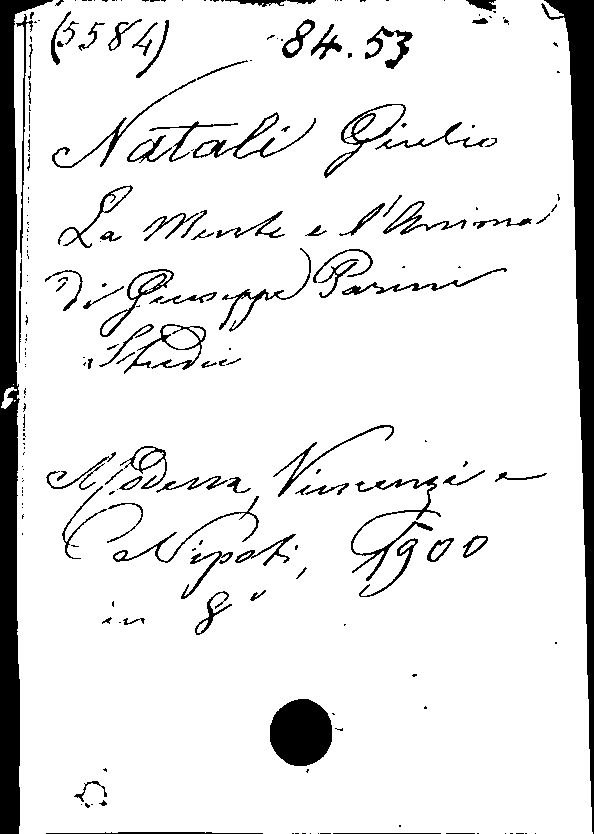 (5584) 84.53
Natali Giulio
La Mente e l'Anima
di Giuseppe Parini
Studii
Modena, Vincenzi e
Nipoti, 1900
in 8°